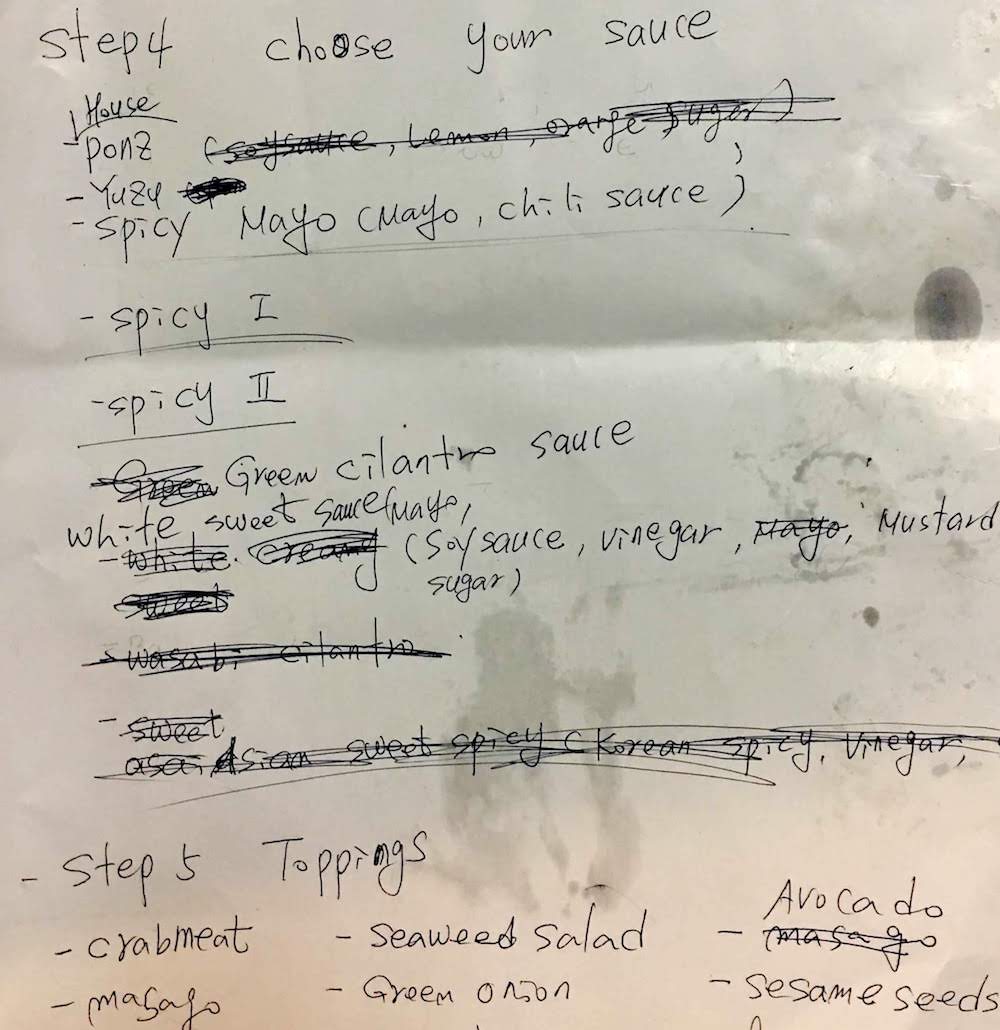 Step 4 choose your sauce
House
- ponz (soysauce, Lemon, orange sugar)
- Yuzu
- spicy Mayo (Mayo, chili sauce)
- spicy I
- spicy II
Green Green cilantro sauce
white sweet sauce (Mayo,
- white creamy (Soy sauce, vinegar, Mayo, Mustard
sugar)
sweet
- wasabi cilantro
- sweet
asai Asian sweet spicy (Korean spicy, Vinegar,
- Step 5 Toppings
Avocado
- crabmeat - seaweed salad - masago
- masago - Green onion - sesame seeds